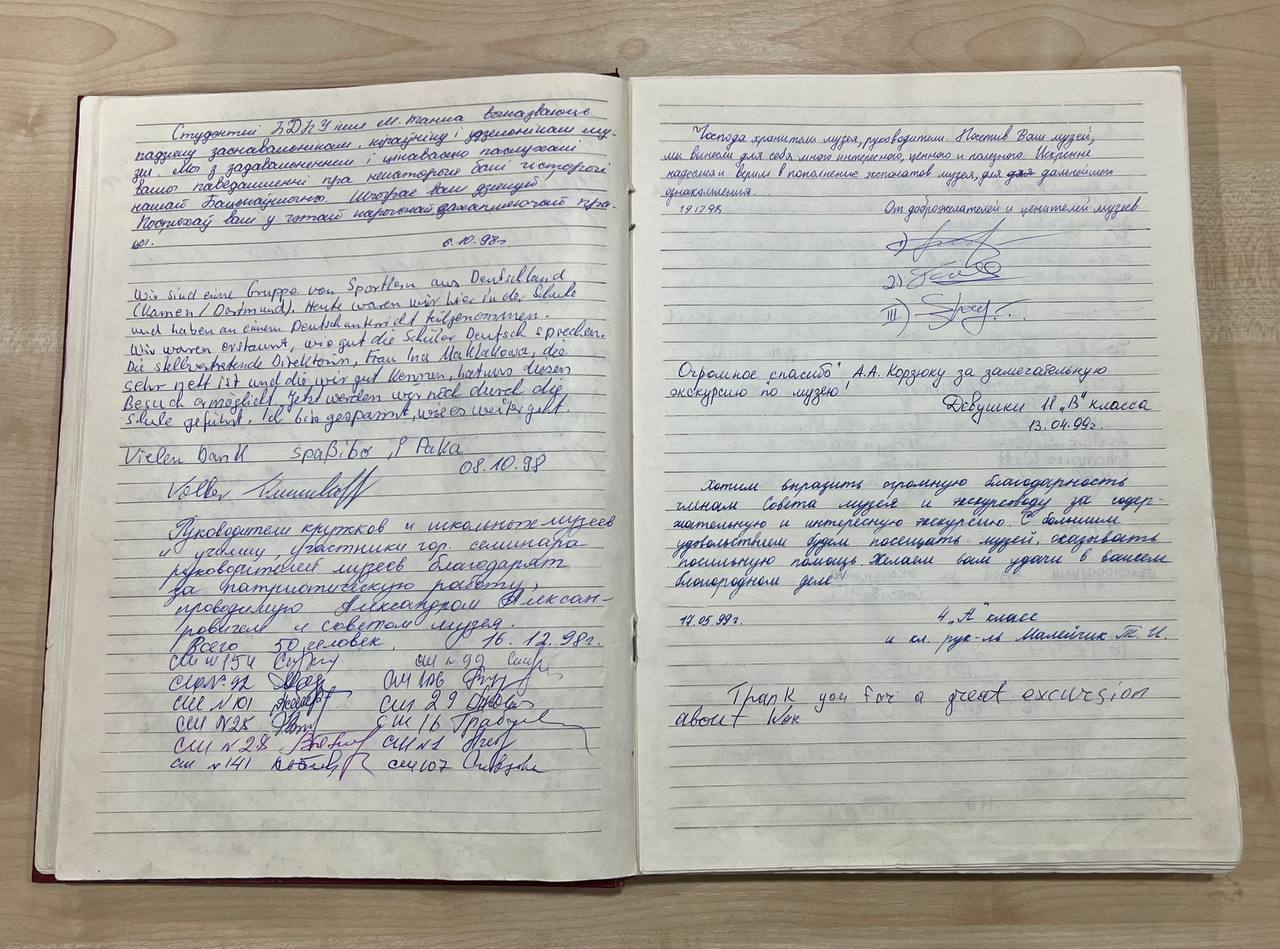 Студенты БДПУ імя М. Танка выказваюць
падзяку заснавальнікам, кіраўніку і удзельнікам му-
зея. Мы з задавальненнем і цікавасцю паслухалі
вашы паведамленні пра некаторыя балі гісторыі
нашай Бацькаўшчыны. Шчырае вам дзякуй.
Поспехаў вам у гэтай карыснай захапляючай пра-
цы.
6.10.98г
Wir sind eine Gruppe von Sportlern aus Deutschland
(Kamen / Dortmund). Heute waren wir hier in der Schule
und haben an einem Deutschunterricht teilgenommen.
Wir waren erstaunt, wie gut die Schüler Deutsch sprechen.
Die stellvertretende Direktorin, Frau Ina Maklakowa, die
sehr nett ist und die wir gut kennen, hat uns diesen
Besuch ermöglicht. Jetzt werden wir noch durch die
Schule geführt. Ich bin gespannt, wie es weiter geht.
Vielen Dank spaßibo, Paka
08.10.98
Руководители кружков и школьных музеев
и училищ, участники гор. семинара
руководителей музеев благодарят
за патриотическую работу,
проводимую Александром Алексан-
ровичем и советом музея.
Всего 50 человек. 16.12.98г.
СШ №154 СШ №99
СШ №92 СШ 106
СШ №101 СШ 29
СШ №25 СШ 16
СШ №28 СШ №1
СШ №141 СШ 107
Господа хранители музея, руководители. Посетив Ваш музей,
мы вынесли для себя много интересного, ценного и полезного. Искренне
надеемся и верим в пополнение экспонатов музея, для дальнейшего
ознакомления.
19.12.98 От доброжелателей и ценителей музеев
1)
2)
III)
Огромное спасибо А.А. Корзюку за замечательную
экскурсию по музею!
Девушки 11 „В" класса
13.04.99г.
Хотим выразить огромную благодарность
членам Совета музея и экскурсоводу за содер-
жательную и интересную экскурсию. С большим
удовольствием будем посещать музей, оказывать
посильную помощь. Желаем вам удачи в вашем
благородном деле
17.05.99г. 4 „А" класс
и кл. рук-ль Малейчик Т. И.
Thank you for a great excursion
about